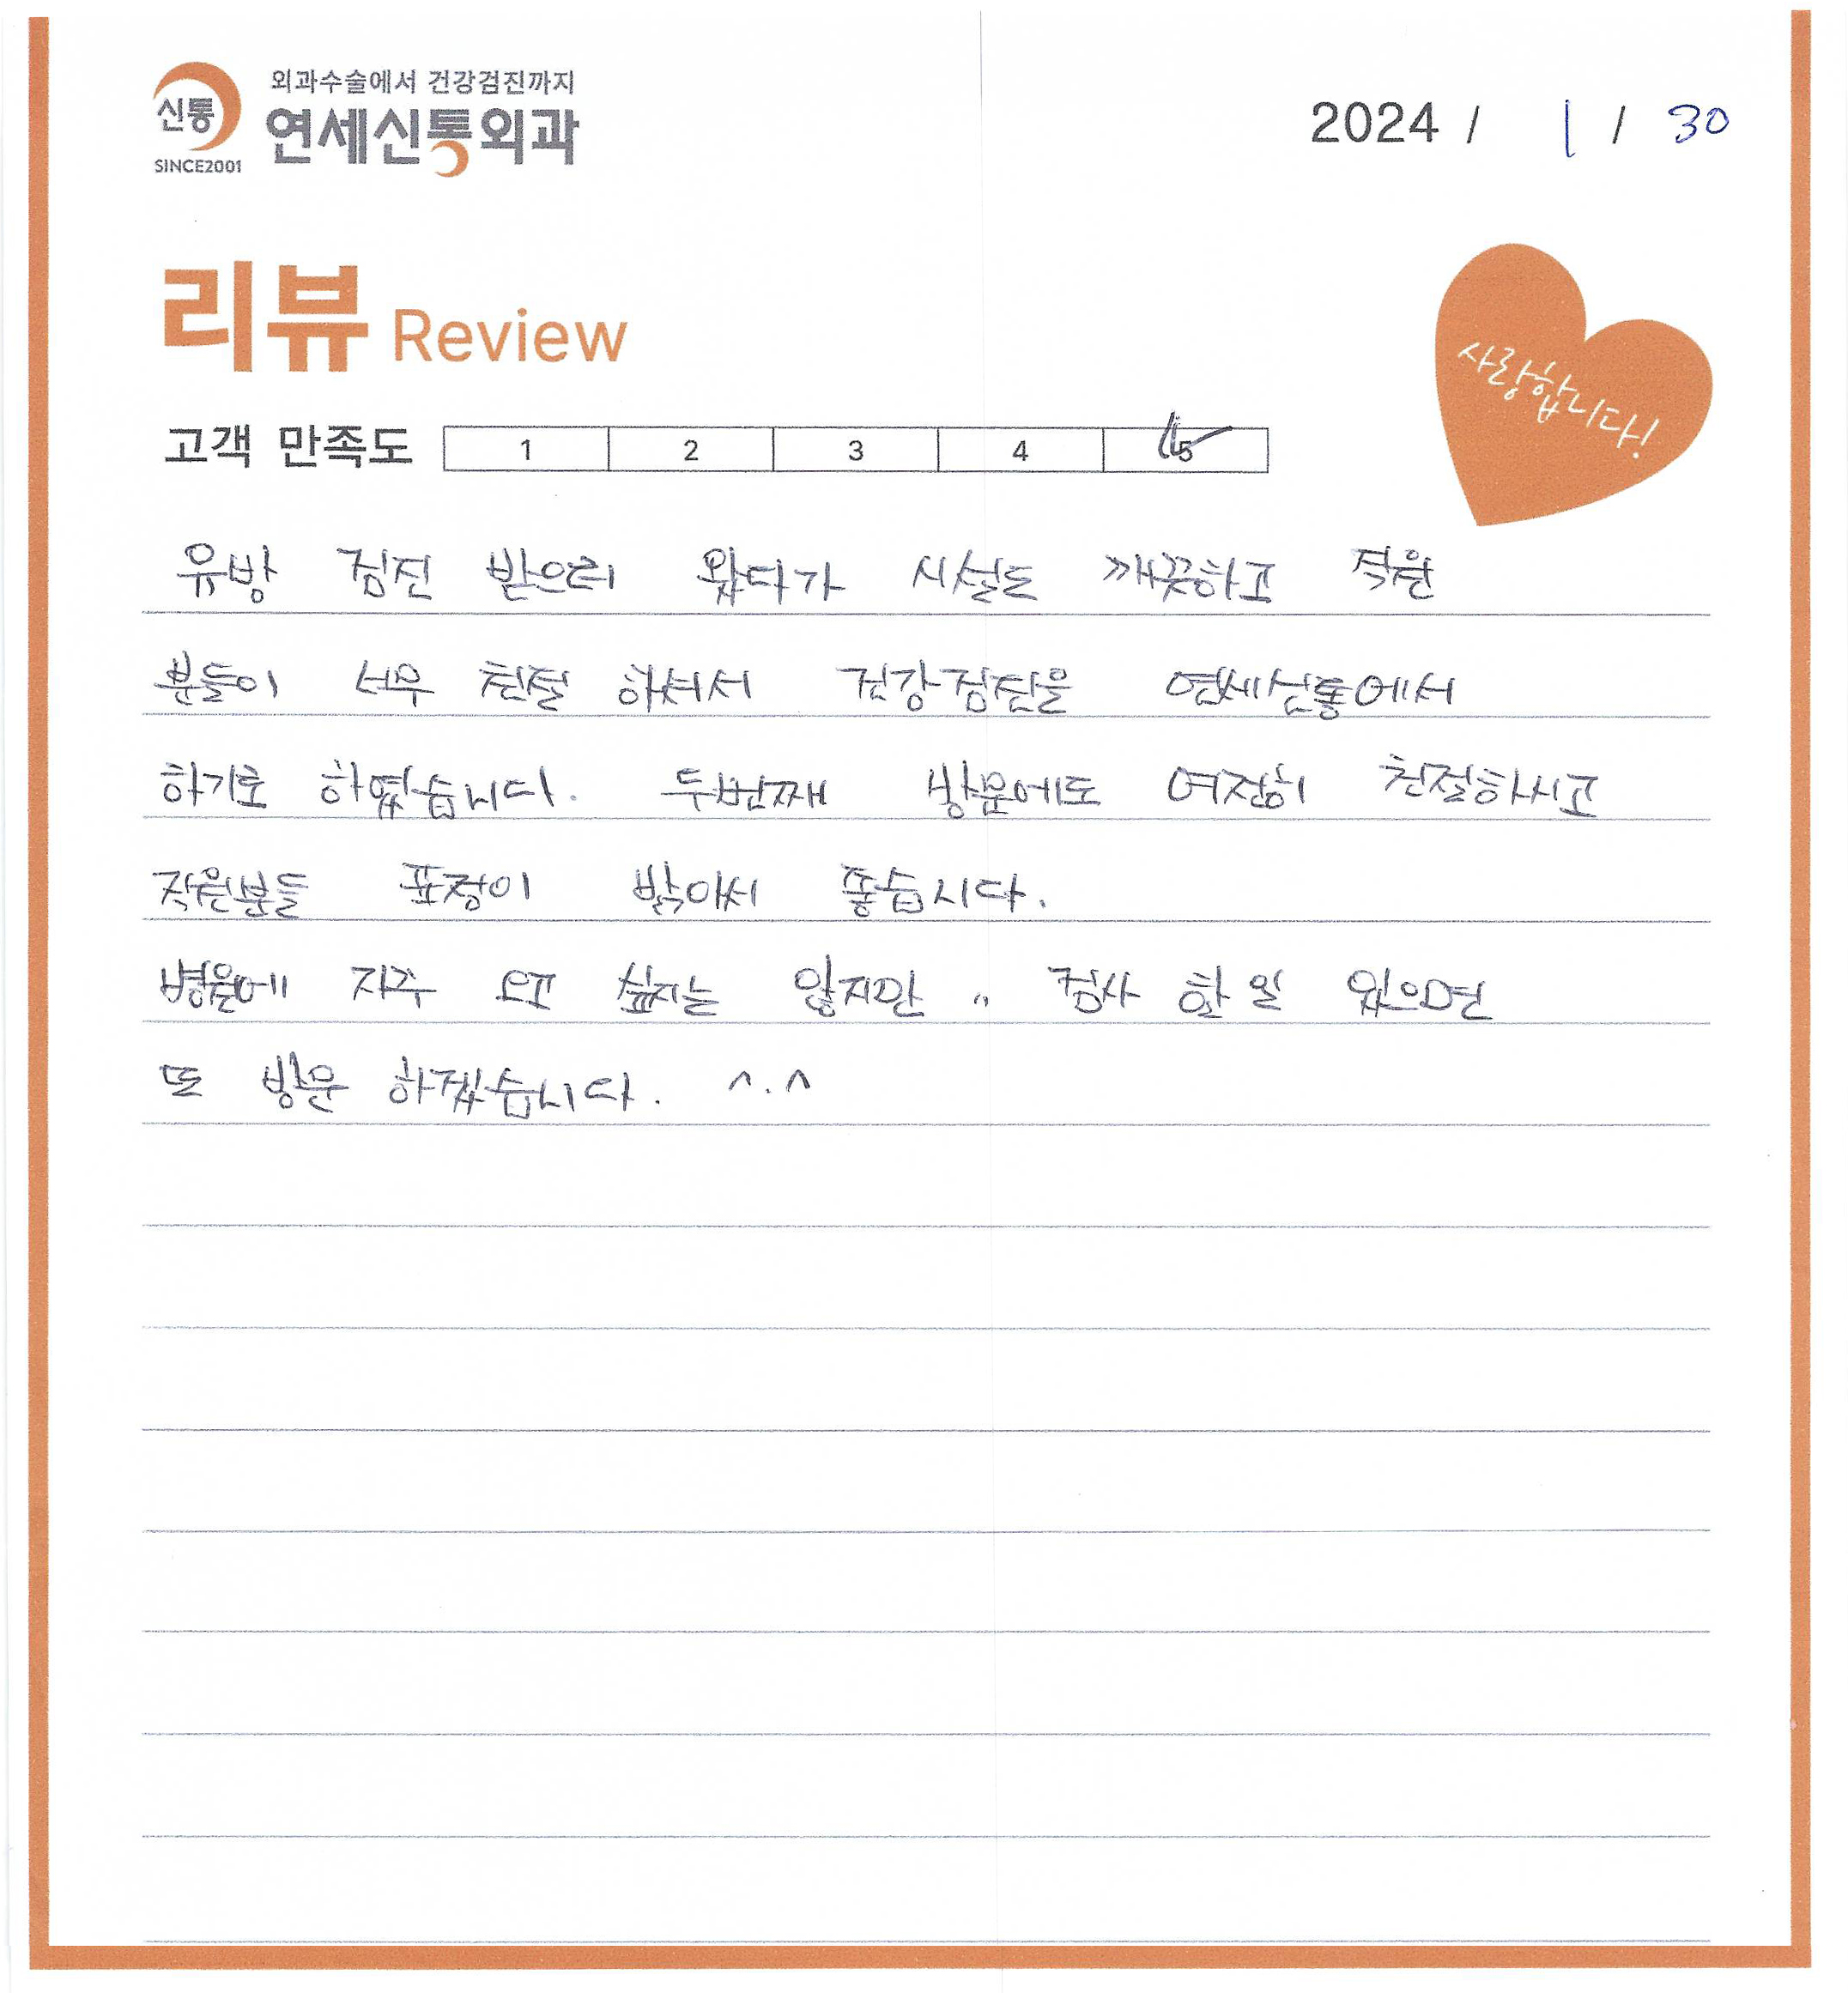 외과수술에서 건강검진까지
신통
연세신통외과
SINCE2001
2024 / 1 / 30
리뷰 Review
사랑합니다!
고객 만족도 1 2 3 4 5
유방 검진 받으러 왔다가 시설도 깨끗하고 직원
분들이 너무 친절 하셔서 건강검진을 연세신통에서
하기로 하였습니다. 두번째 방문에도 여전히 친절하시고
직원분들 표정이 밝아서 좋습니다.
병원에 자주 오고 싶지는 않지만 .. 검사 할 일 있으면
또 방문 하겠습니다. ^.^